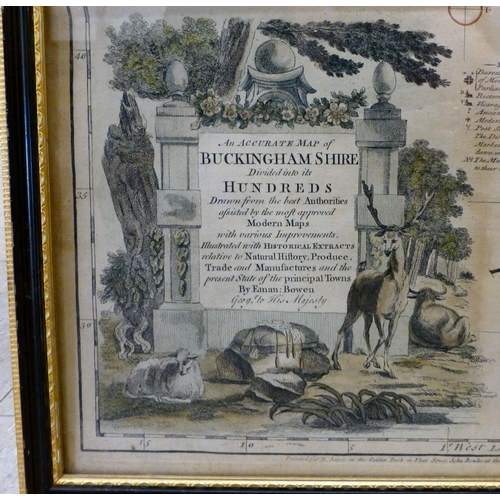 An ACCURATE MAP of
BUCKINGHAM SHIRE
Divided into its
HUNDREDS
Drawn from the best Authorities
assisted by the most approved
Modern Maps
with various Improvements.
Illustrated with HISTORICAL EXTRACTS
relative to Natural History, Produce,
Trade and Manufactures and the
present State of the principal Towns
By Eman: Bowen
Geogr. to His Majesty
40
35
30
15
10
5
1d. West